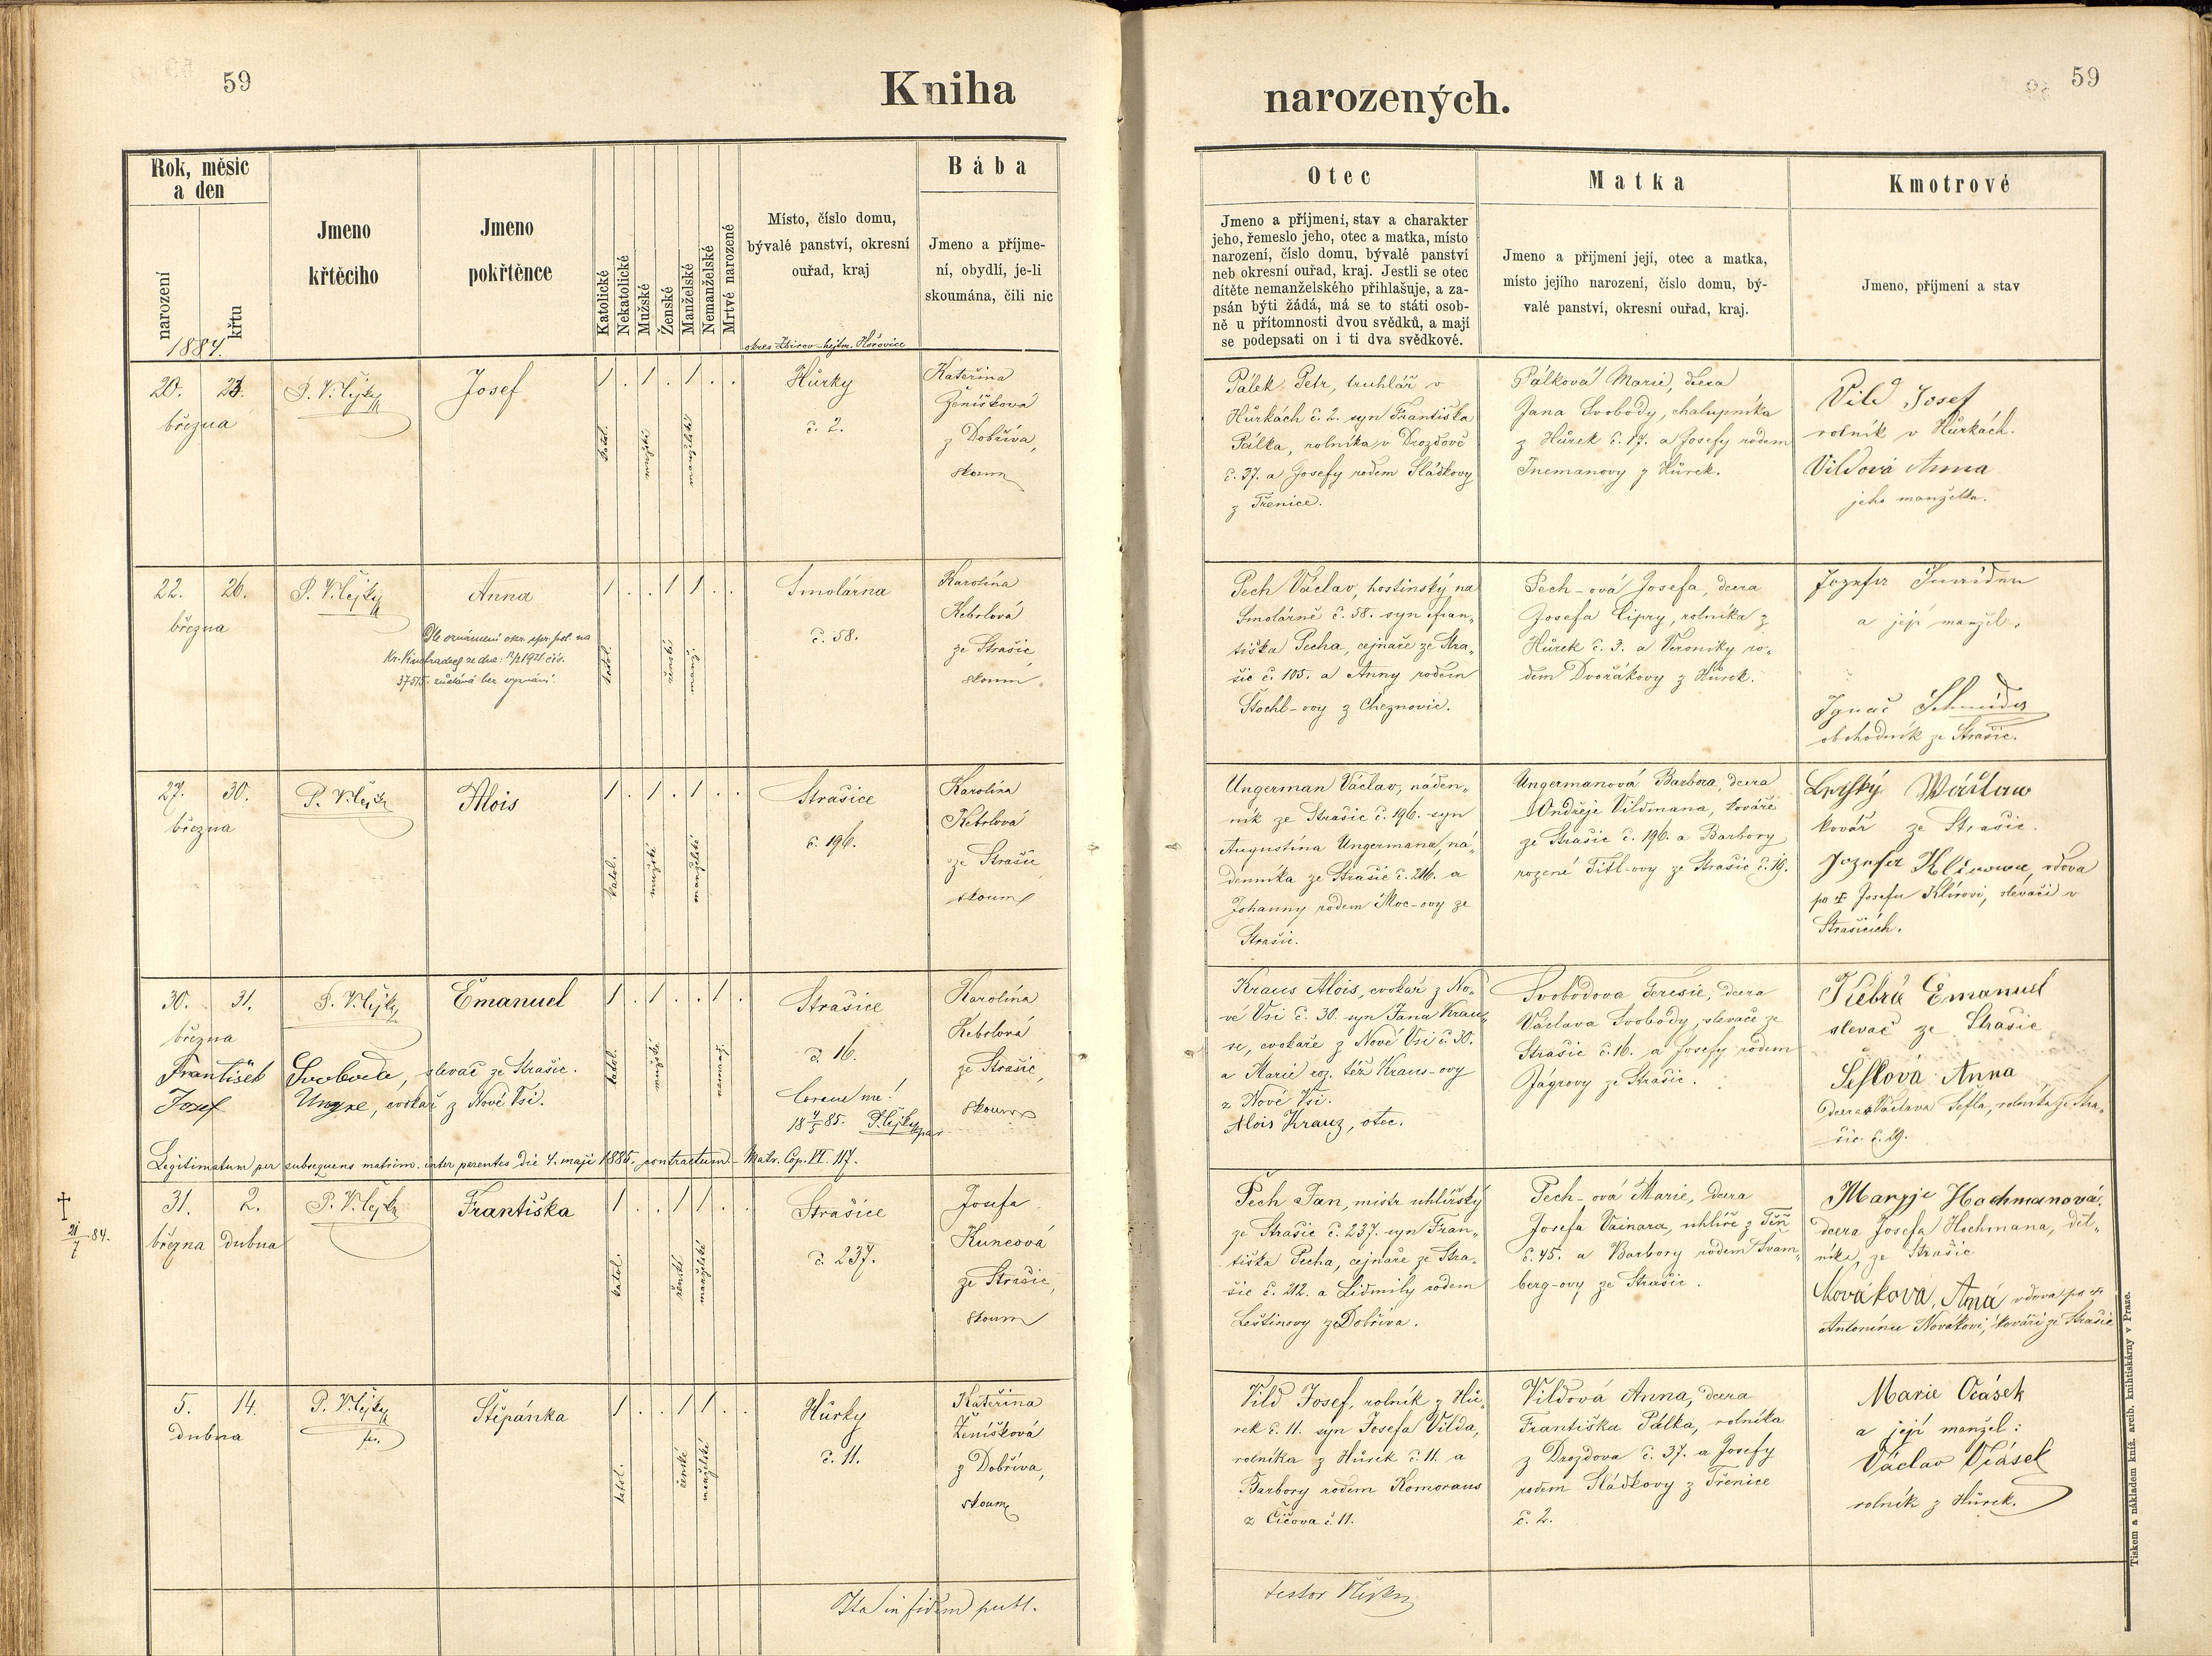 59
Kniha
narozených.
59
Rok, měsíc
a den
narození
křtu
1884.
Jmeno
křtěcího
Jmeno
pokřtěnce
Katolické
Nekatolické
Mužské
Ženské
Manželské
Nemanželské
Mrtvé narozené
Místo, číslo domu,
bývalé panství, okresní
ouřad, kraj
okres Zbirov-hejtm. Hořovice
Bába
Jmeno a příjme-
ní, obydlí, je-li
skoumána, čili nic
Otec
Jmeno a příjmení, stav a charakter
jeho, řemeslo jeho, otec a matka, místo
narození, číslo domu, bývalé panství
neb okresní ouřad, kraj. Jestli se otec
dítěte nemanželského přihlašuje, a za-
psán býti žádá, má se to státi osob-
ně u přítomnosti dvou svědků, a mají
se podepsati on i ti dva svědkové.
Matka
Jmeno a přijmení její, otec a matka,
místo jejího narození, číslo domu, bý-
valé panství, okresní ouřad, kraj.
Kmotrové
Jmeno, příjmení a stav
20. 23.
března
P. V. Lejsky
Josef
1 . 1 . 1 . .
katol.
mužské
manželské
Hůrky
č. 2.
Kateřina
Ženíšková
z Dobříva,
skoum
Pálek Petr, truhlář v
Hůrkách č. 2. syn Františka
Pálka, rolníka v Drozdově
č. 37. a Josefy rodem Sládkovy
z Třenice.
Pálková Marie, dcera
Jana Svobody, chalupníka
z Hůrek č. 17. a Josefy rodem
Tnemanovy z Hůrek.
Vild Josef
rolník v Hůrkách.
Vildová Anna
jeho manželka.
22. 26.
března
Anna
1 . . 1 1 . .
katol.
ženské
manž.
Smolárna
č. 58.
Karolína
Kebrlová
ze Strašic,
skoum
Pech Václav, hostinský na
Smolárně č. 58. syn Fran„
tiška Pecha, cejnaře ze Stra„
šic č. 105. a Anny rodem
Štochl-ovy z Cheznovic.
Pech-ová Josefa, dcera
Josefa Cipry, rolníka z
Hůrek č. 3. a Veroniky ro„
dem Dvořákovy z Hůrek.
a její manžel,
Ignac Schneider
obchodník ze Strašic.
27. 30.
března
Alois
1 . 1 . 1 . .
katol.
mužské
manželské
Strašice
č. 196.
Karolína
Kebrlová
ze Strašic
skoum
Ungerman Václav, náden„
ník ze Strašic č. 196. syn
Augustína Ungermana, ná„
denníka ze Strašic č. 216. a
Johanny rodem Moc-ovy ze
Strašic.
Ungermanová Barbora, dcera
Ondřeje Vildmana, kováře
ze Strašic č. 196. a Barbory
rozené Titl-ovy ze Strašic č. 19.
kovář ze Strašic.
vdova
po † Josefu Klírovi, slevači v
Strašicích.
30. 31.
března
Emanuel
1 . 1 . . 1 .
katol.
mužské
nemanž.
Strašice
č. 16.
Karolína
Kebrlová
ze Strašic,
skoum
František Svoboda, slevač ze Strašic.
Josef Ungre, cvokař z Nové Vsi.
Coram me!
18 4/5 85.
Legitimatum per subsequens matrim. inter parentes die 4. maji 1885. contractum. – Matr. Cop. VI. 117.
Kraus Alois, cvokař z No„
vé Vsi č. 30. syn Jana Krau„
se, cvokaře z Nové Vsi č. 30.
a Marie roz. též Kraus-ovy
z Nové Vsi.
Alois Krauz, otec.
Svobodova Teresie, dcera
Václava Svobody, slevače ze
Strašic č. 16. a Josefy rodem
Jágrovy ze Strašic.
Emanuel
slevač ze Strašic
Šeflová Anna
dcera Václava Šefla, rolníka ze Stra„
šic č. 29.
†
21/7 84.
31. 2.
března dubna
Františka
1 . . 1 1 . .
katol.
ženské
manželské
Strašice
č. 237.
Josefa
Kuncová
ze Strašic,
skoum
Pech Jan, mistr uhlířský
ze Strašic č. 237. syn Fran„
tiška Pecha, cejnaře ze Stra„
šic č. 212. a Lidmily rodem
Leštinovy z Dobříva.
Pech-ová Marie, dcera
Josefa Vainara, uhlíře z Těň
č. 45. a Barbory rodem Švam„
berg-ovy ze Strašic.
Maryje Hochmanová,
dcera Josefa Hochmana, děl„
níka, ze Strašic
Nováková, Aná vdova po †
Antonínu Novákovi, kováři ze Strašic
5. 14.
dubna
Štěpánka
1 . . 1 1 . .
katol.
ženské
manželské
Hůrky
č. 11.
Kateřina
Ženíšková
z Dobříva,
skoum
Vild Josef, rolník z Hů„
rek č. 11. syn Josefa Vilda,
rolníka z Hůrek č. 11. a
Barbory rodem Komoraus
z Čičova č. 11.
Vildová Anna, dcera
Františka Pálka, rolníka
z Drozdova č. 37. a Josefy
rodem Sládkovy z Třenice
č. 2.
Marie Ocásek
a její manžel:
Václav Ocásek
rolník z Hůrek.
Ita in fidem publ.
testor
Tiskem a nákladem kníž. arcib. knihtiskárny v Praze.